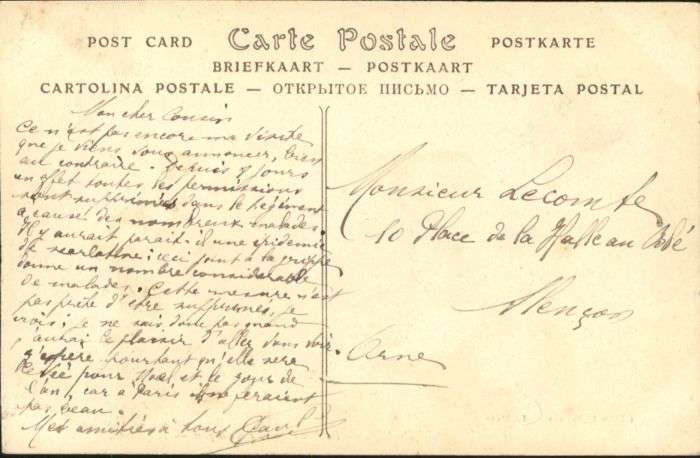 POST CARD Carte Postale POSTKARTE
BRIEFKAART — POSTKAART
CARTOLINA POSTALE — ОТКРЫТОЕ ПИСЬМО — TARJETA POSTAL
Mon cher Cousin
Ce n'est pas encore ma visite
que je viens vous annoncer, bien
au contraire. Depuis jours
en effet toutes les permissions
sont supprimées dans le Régiment
à cause des nombreux malades.
Il y aurait parait-il une épidémie
de scarlatine; ceci joint à la grippe
donne un nombre considérable
de malades. Cette mesure n'est
pas prête d'être supprimée, je
crois; je ne sais donc pas quand
j'aurai le plaisir d'aller vous voir.
J'espère pourtant qu'elle sera
levée pour Noël et le jour de
l'an, car à Paris ils ne seraient
pas beau.
Mes amitiés à tous Paul
Monsieur Lecomte
10 Place de la Halle au Blé
Alençon
Orne